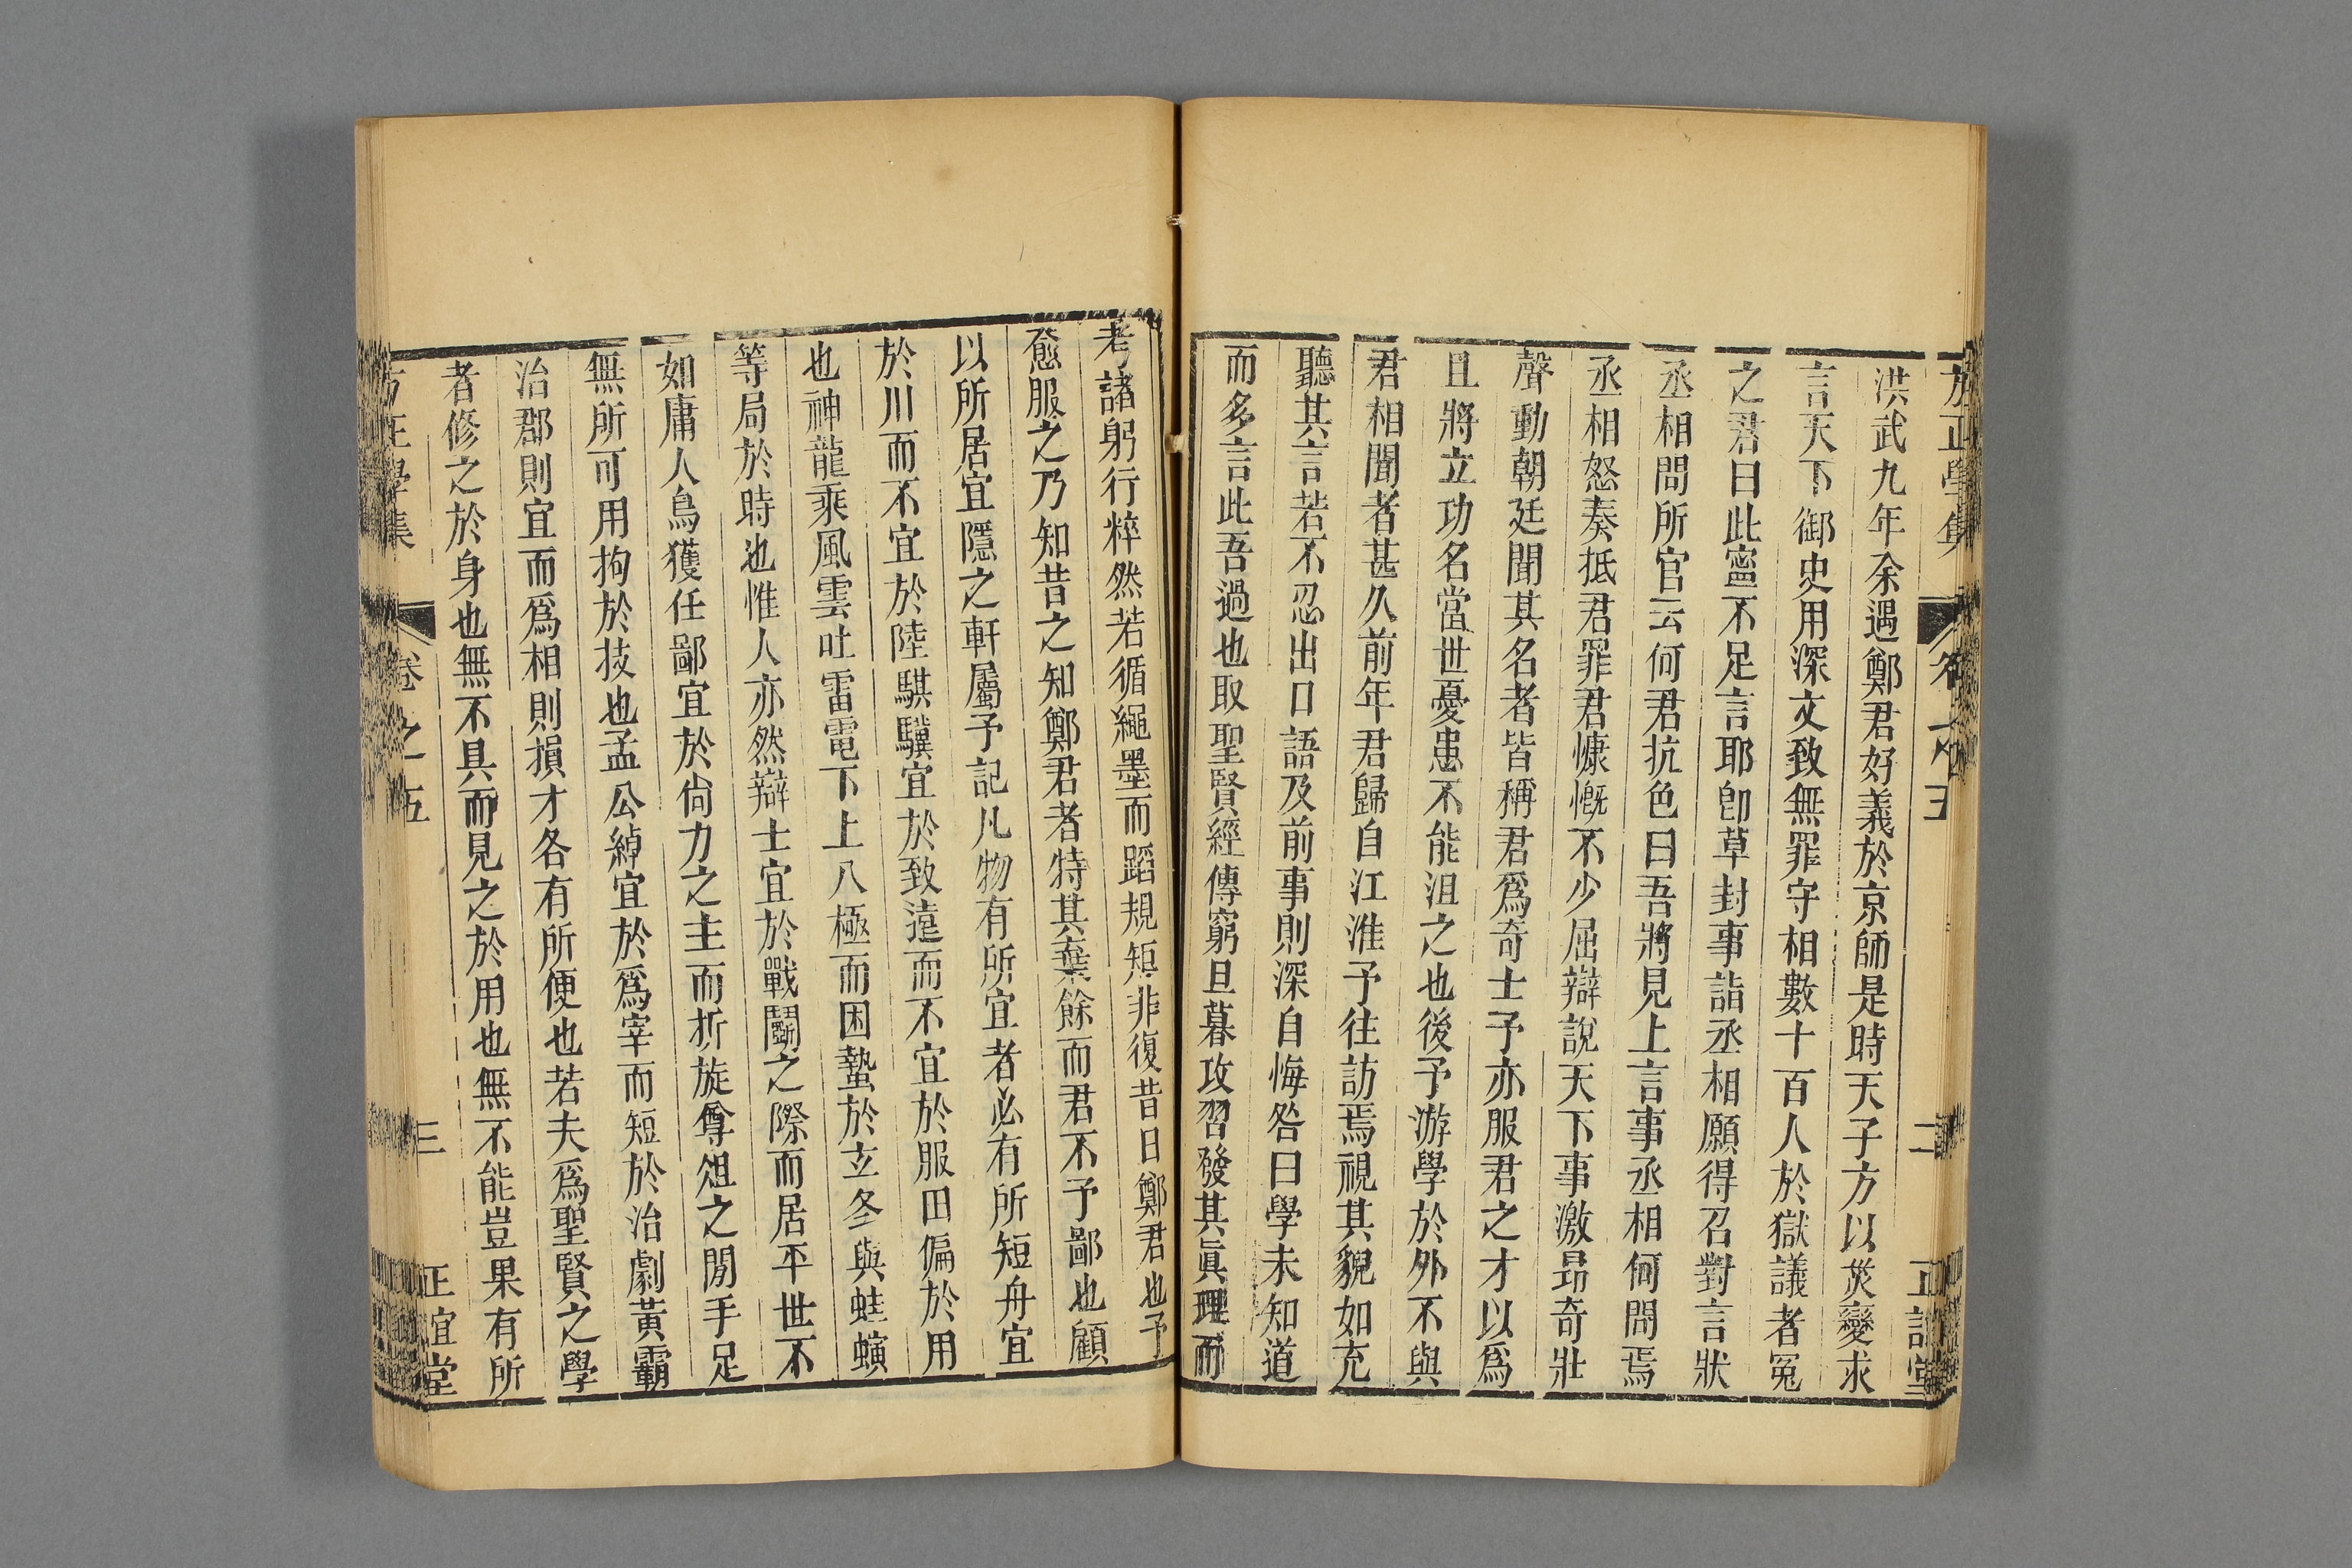 方正學集 卷之五 二 正誼堂
洪武九年余遇鄭君好義於京師是時天子方以災變求
言天下御史用深文致無罪守相數十百人於獄議者冤
之君曰此寧不足言耶卽草封事詣丞相願得召對言狀
丞相問所官云何君抗色曰吾將見上言事丞相何問焉
丞相怒奏抵君罪君慷慨不少屈辯說天下事激昂奇壯
聲動朝廷聞其名者皆稱君爲奇士予亦服君之才以爲
且將立功名當世憂患不能沮之也後予游學於外不與
君相聞者甚久前年君歸自江淮予往訪焉視其貌如充
聽其言若不忍出口語及前事則深自悔咎曰學未知道
而多言此吾過也取聖賢經傳窮旦暮攻習發其眞理而
考諸躬行粹然若循繩墨而蹈規矩非復昔日鄭君也予
愈服之乃知昔之知鄭君者特其棄餘而君不予鄙也顧
以所居宜隱之軒屬予記凡物有所宜者必有所短舟宜
於川而不宜於陸騏驥宜於致遠而不宜於服田偏於用
也神龍乘風雲吐雷電下上八極而困蟄於玄冬與蛙蠙
等局於時也惟人亦然辯士宜於戰鬭之際而居平世不
如庸人烏獲任鄙宜於尙力之主而折旋尊俎之閒手足
無所可用拘於技也孟公綽宜於爲宰而短於治劇黃霸
治郡則宜而爲相則損才各有所便也若夫爲聖賢之學
者修之於身也無不具而見之於用也無不能豈果有所
方正學集 卷之五 三 正誼堂